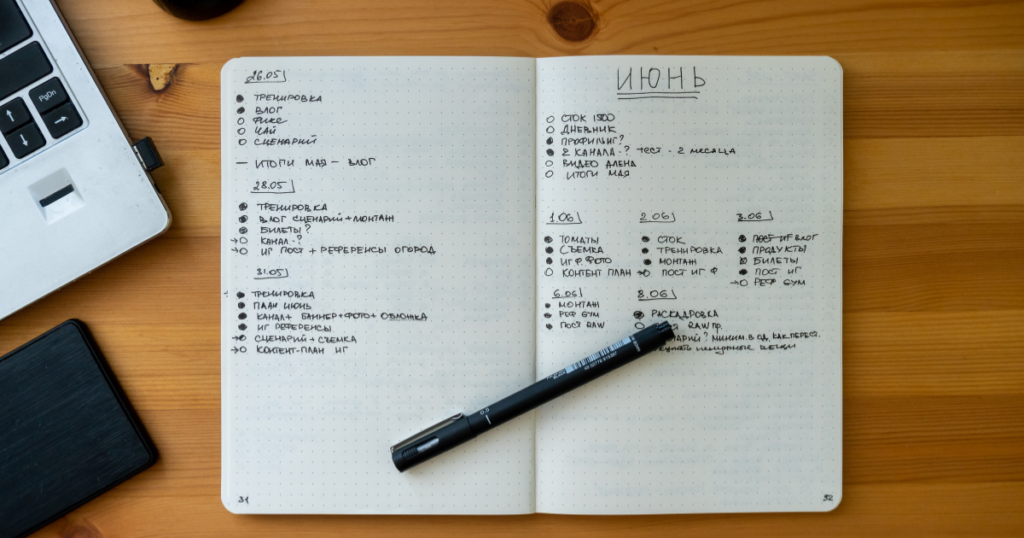 PgDn
26.05
ТРЕНИРОВКА
ВЛОГ
ЧАЙ
СЦЕНАРИЙ
— ИТОГИ МАЯ — ВЛОГ
28.05
ТРЕНИРОВКА
ВЛОГ СЦЕНАРИЙ + МОНТАЖ
БИЛЕТЫ?
КАНАЛ - ?
ИГ ПОСТ + РЕФЕРЕНСЫ ОГОРОД
31.05
ТРЕНИРОВКА
ПЛАН ИЮНЬ
КАНАЛ + БАННЕР + ФОТО + ОБЛОЖКА
ИГ РЕФЕРЕНСЫ
СЦЕНАРИЙ + СЪЕМКА
КОНТЕНТ-ПЛАН ИГ
31
ИЮНЬ
СТОК 1500
ДНЕВНИК
ПРОФИЛЬИНГ?
2 КАНАЛА - ? ТЕСТ - 2 МЕСЯЦА
ВИДЕО АЛЕНА
ИТОГИ МАЯ
1.06
ТОМАТЫ
СЪЕМКА
ИГ Ф ФОТО
КОНТЕНТ ПЛАН
2.06
СТОК
ТРЕНИРОВКА
МОНТАЖ
ПОСТ ИГ Ф
3.06
ПОСТ ИГ ВЛОГ
ПРОДУКТЫ
БИЛЕТЫ
ПОСТ ИГ
РЕФ GYM
6.06
МОНТАЖ
РЕФ GYM
ПОСТ RAW
8.06
РАСКАДРОВКА
RAW ПР.
? МИНИМ. В ОД. КАК ПЕРЕСТ.
ненужные вещи
0.0
32